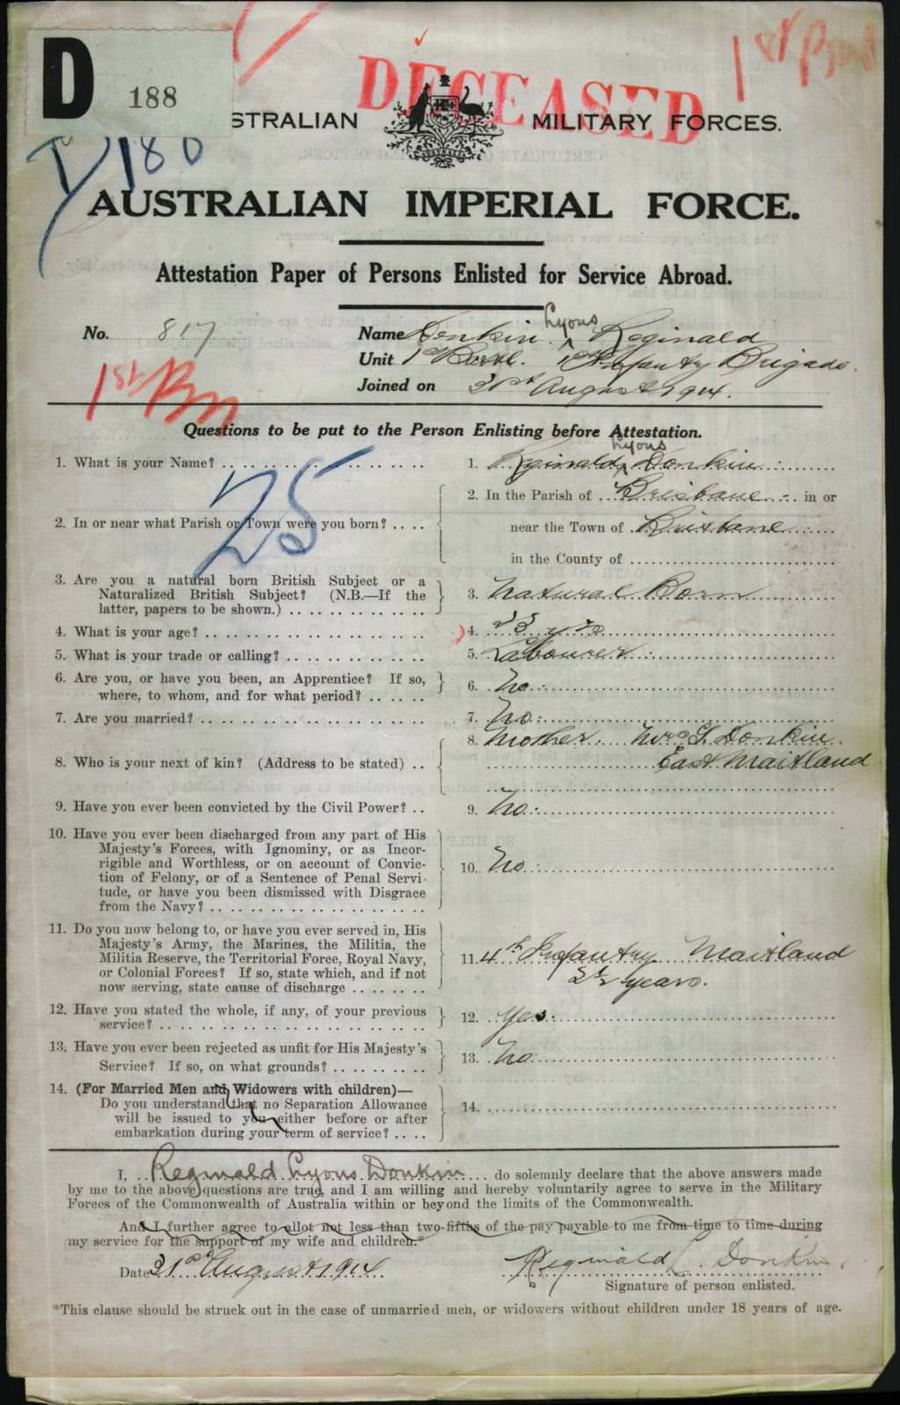 D
188
D/180
DECEASED
1st Bn
STRALIAN MILITARY FORCES.
AUSTRALIAN IMPERIAL FORCE.
Attestation Paper of Persons Enlisted for Service Abroad.
No. 817
Lyons
Name Donkin Reginald
Unit 1st Battl. 1st Infantry Brigade.
Joined on 31st August 1914.
1st Bn
Questions to be put to the Person Enlisting before Attestation.
1. What is your Name? 1. Reginald Lyons Donkin
25
2. In or near what Parish or Town were you born? 2. In the Parish of Brisbane in or
near the Town of Brisbane
in the County of
3. Are you a natural born British Subject or a
Naturalized British Subject? (N.B.—If the
latter, papers to be shown.) 3. Natural Born
4. What is your age? 4. 23 yrs
5. What is your trade or calling? 5. Labourer
6. Are you, or have you been, an Apprentice? If so,
where, to whom, and for what period? 6. No
7. Are you married? 7. No
8. Who is your next of kin? (Address to be stated) 8. Mother Mrs Donkin
East Maitland
9. Have you ever been convicted by the Civil Power? 9. No
10. Have you ever been discharged from any part of His
Majesty's Forces, with Ignominy, or as Incor-
rigible and Worthless, or on account of Convic-
tion of Felony, or of a Sentence of Penal Servi-
tude, or have you been dismissed with Disgrace
from the Navy? 10. No
11. Do you now belong to, or have you ever served in, His
Majesty's Army, the Marines, the Militia, the
Militia Reserve, the Territorial Force, Royal Navy,
or Colonial Forces? If so, state which, and if not
now serving, state cause of discharge 11. 4th Infantry Maitland
years.
12. Have you stated the whole, if any, of your previous
service? 12. Yes
13. Have you ever been rejected as unfit for His Majesty's
Service? If so, on what grounds? 13. No
14. (For Married Men and Widowers with children)—
Do you understand that no Separation Allowance
will be issued to you either before or after
embarkation during your term of service? 14.
I, Reginald Lyons Donkin do solemnly declare that the above answers made
by me to the above questions are true, and I am willing and hereby voluntarily agree to serve in the Military
Forces of the Commonwealth of Australia within or beyond the limits of the Commonwealth.
And I further agree to allot not less than two-fifths of the pay payable to me from time to time during
my service for the support of my wife and children.*
Date 31st August 1914. Reginald L. Donkin.
Signature of person enlisted.
*This clause should be struck out in the case of unmarried men, or widowers without children under 18 years of age.